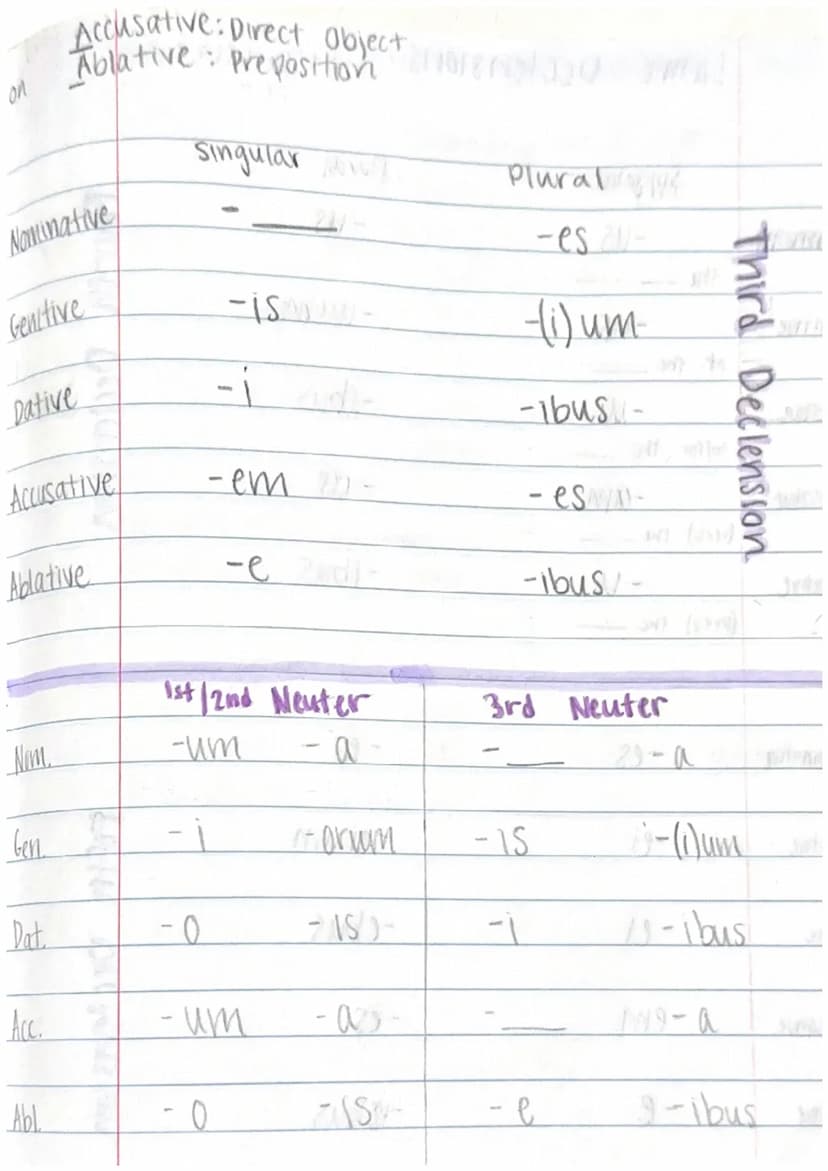 Accusative: Direct Object
Ablative: Preposition
on
singular plural
Nominative -___ -es
Genitive -is -(i)um
Dative -i -ibus
Accusative -em -es
Ablative -e -ibus
Third Declension
1st/2nd Neuter 3rd Neuter
Nom. -um -a -___ -a
Gen. -i -orum -is -(i)um
Dat. -o -is -i -ibus
Acc. -um -a -___ -a
Abl. -o -is -e -ibus